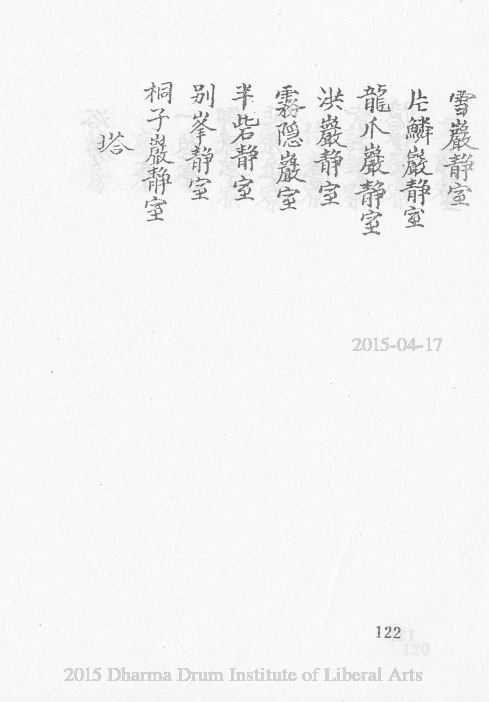 雪巖静室
片鱗巖静室
龍爪巖静室
洪巖静室
霧隐巖室
半岩静室
别峯静室
桐子巖静室
塔
2015-04-17
122
120
2015 Dharma Drum Institute of Liberal Arts